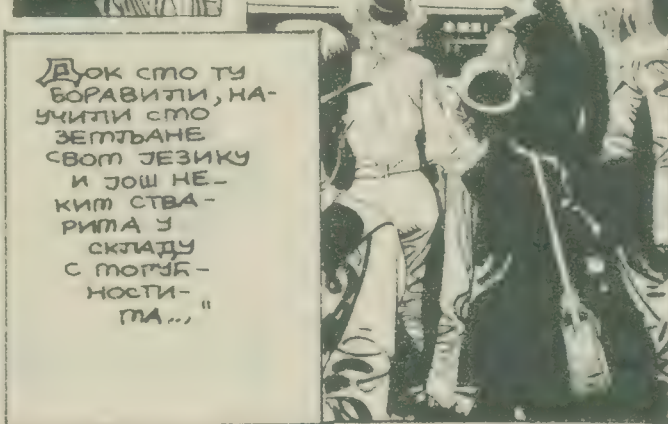 ДОК СМО ТУ
БОРАВИЛИ, НА-
УЧИЛИ СМО
ЗЕМЉАНЕ
СВОМ ЈЕЗИКУ
И ЈОШ НЕ-
КИМ СТВА-
РИМА У
СКЛАДУ
С МОГУЋ-
НОСТИ-
МА..."